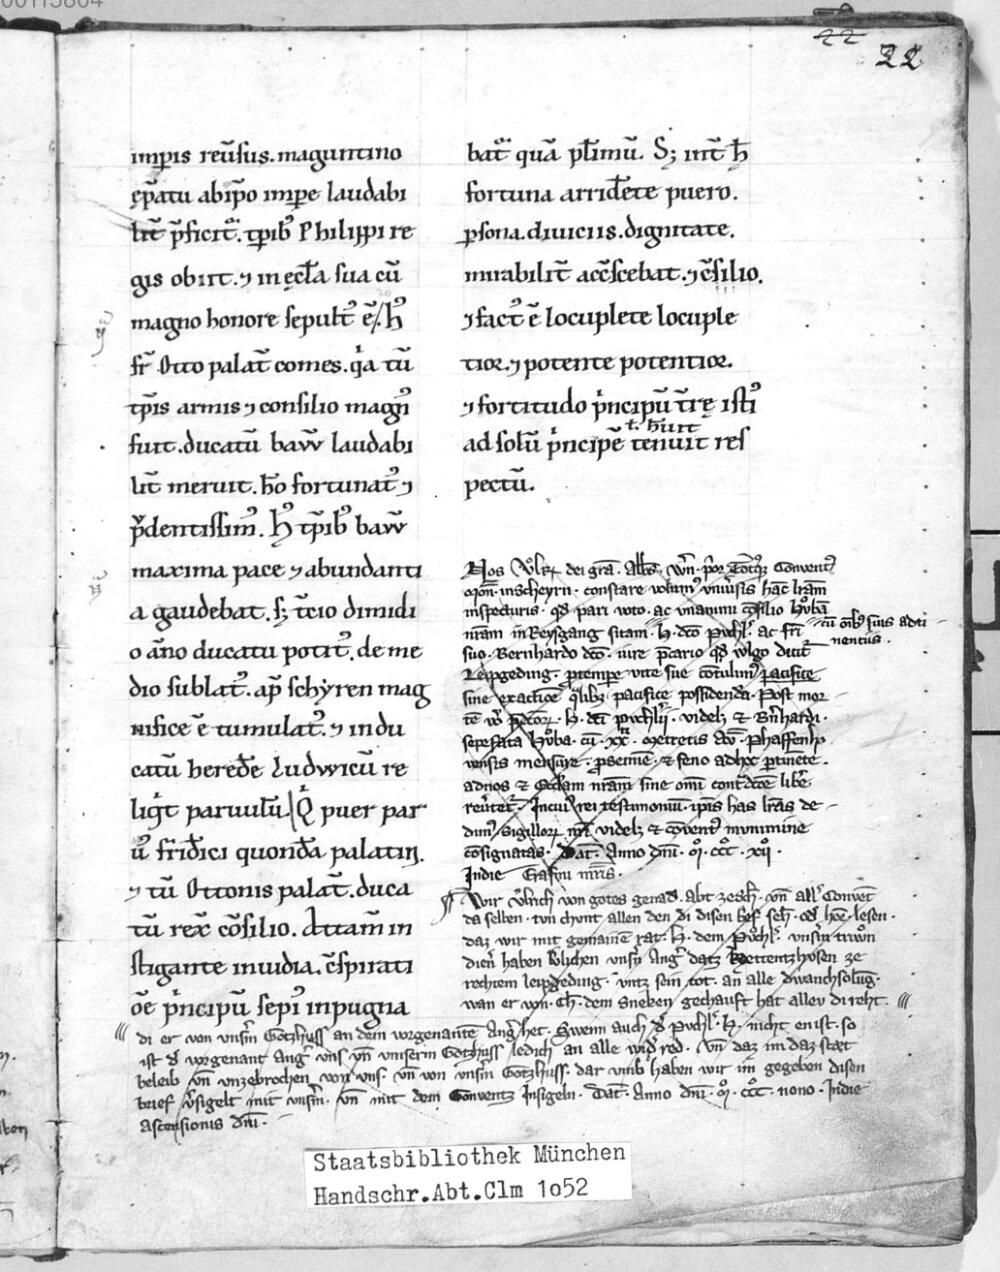 22
22
imp̲is reũsus. maguntino
ep̃atu ab ip̃o imp̲e laudabi
lit̃ p̃ficit̃. t̲pib᷒ Philippi re
gis obiit. ⁊ in ęccl̃a sua cũ
magno honore sepult᷒ ẽ. h᷒
fr̃ Otto palat̃ comes. q̇a tũ
tp̃is armis ⁊ consilio magn᷒
fuit. ducatũ baw̃ laudabi
lit̃ meruit. hõ fortunat᷒ ⁊
p̃dentissim᷒. h᷒ tp̃ib᷒ baw̃
maxima pace ⁊ abundanti
a gaudebat. s; t̃cio dimidi
o ãno ducatu potit᷒. de me
dio sublat᷒. ap̃ schyren mag
nifice ẽ tumulat᷒. ⁊ in du
catũ herede̅ Ludwicũ re
liq̇t paruulũ. Q̇ puer par
u᷒ frid̃ici quonda̅ palatin.
⁊ tũ Ottonis palat̃. duca
tũ rex̃ cõsilio. Attam̃ in
stigante inuidia. c̃spirati
oẽ ṗncipũ sepi᷒ inpugna
bat᷒ quã pl̃imũ. S; int̃ h̃
fortuna arride̅te puero.
p̲sona. diuiciis. dignitate.
mirabilit̃ acc̃scebat. ⁊ c̃silio.
⁊ fact᷒ ẽ locuplete locuple
tior. ⁊ potente potentior.
⁊ fortitudo ṗncipũ t̃rę isti᷒
ł. h̃uit
ad solũ ṗncipẽ tenuit res
pectũ.
Nos Vͦlr dei gr̃a. Abb̃s. vñ. ṗor Totq; Conuent᷒
Mon̄. in Scheyrn. constare volum᷒ vniu̇sis hãc lr̃am
inspecturis. qd̃ pari voto. ac vnanimi cõsilio Hůbã
nr̃am in Reysgang sitam. H. dc̃o Půchl̃. ac fr̃i
cũ om̃ib᷒ suis adti
nentiis.
suo. Bernhardo dc̃o. iure p̃cario qd̃ wlgo dicit̃
Leipgeding. p̲ tempore vite sue cõtulim᷒ pacifice
sine exactiõe q̃libz pacifice possidenda. Post mor
tẽ v̊ p̃dc̃or. H. dc̃i Půchl̃ii. videlz & B̃nhardi.
sepefata Hůba. cũ. xx. metretis Phaffenh
vensis mensure. & feno adhuc p̲tinẽte.
ad nos & Eccl̃iam nr̃am sine om̃i cont̃dc̃õe libe᷒
reũtet̃. In cui᷒ rei testimoniũ. ip̃is has lr̃as de
dim᷒ Sigillor nr̃i videlz & Cõvent᷒ mvnimine
cõsignatas. Dat̃. Anno dñi. M̊. ccc̊. xij̊.
Indie Gasm mr̃is.
Wir Vͦlrich von gotes genad. Abt ze Sch̃. vñ all᷒ Convẽt
da selben. tvn chvnt allen den di disen b̃ef seh̃. od̃ hoẽ. lesen.
daz wir mit gemainẽ rat. H. dem Půchl̃. vnsm̃ trwõn
dien̄ haben v̊lichen vnsn̄ Ang̃ datz Rettentzhosen ze
rechtem leipgeding. vntz sein tot. an alle dwanchsolũg.
wan er von. Ch. dem Sneken gechauft hat allev di reht.
di er von vnsm̃ Gotzhuss an dem vorgenantẽ Ang̃ het. Swenn auch d̃ Půchl̃. H. nicht en ist. so
ist d̃ vorgenant Ang̃ vns vñ vnserm Gotzhuss ledich an alle wid̃ red. vñ daz im daz stæt
beleib vñ vnzebrochen von vns vñ von vnsm̃ Gotzhuss. dar vmb haben wir im gegeben disen
brief v̊sigelt mit vnsm̃. vñ mit dem Conventz Insigeln. Dat̃. Anno dñi. M̊. ccc̊. nono. Indie
ascensionis dñi.
Staatsbibliothek München
Handschr.Abt.Clm 1o52